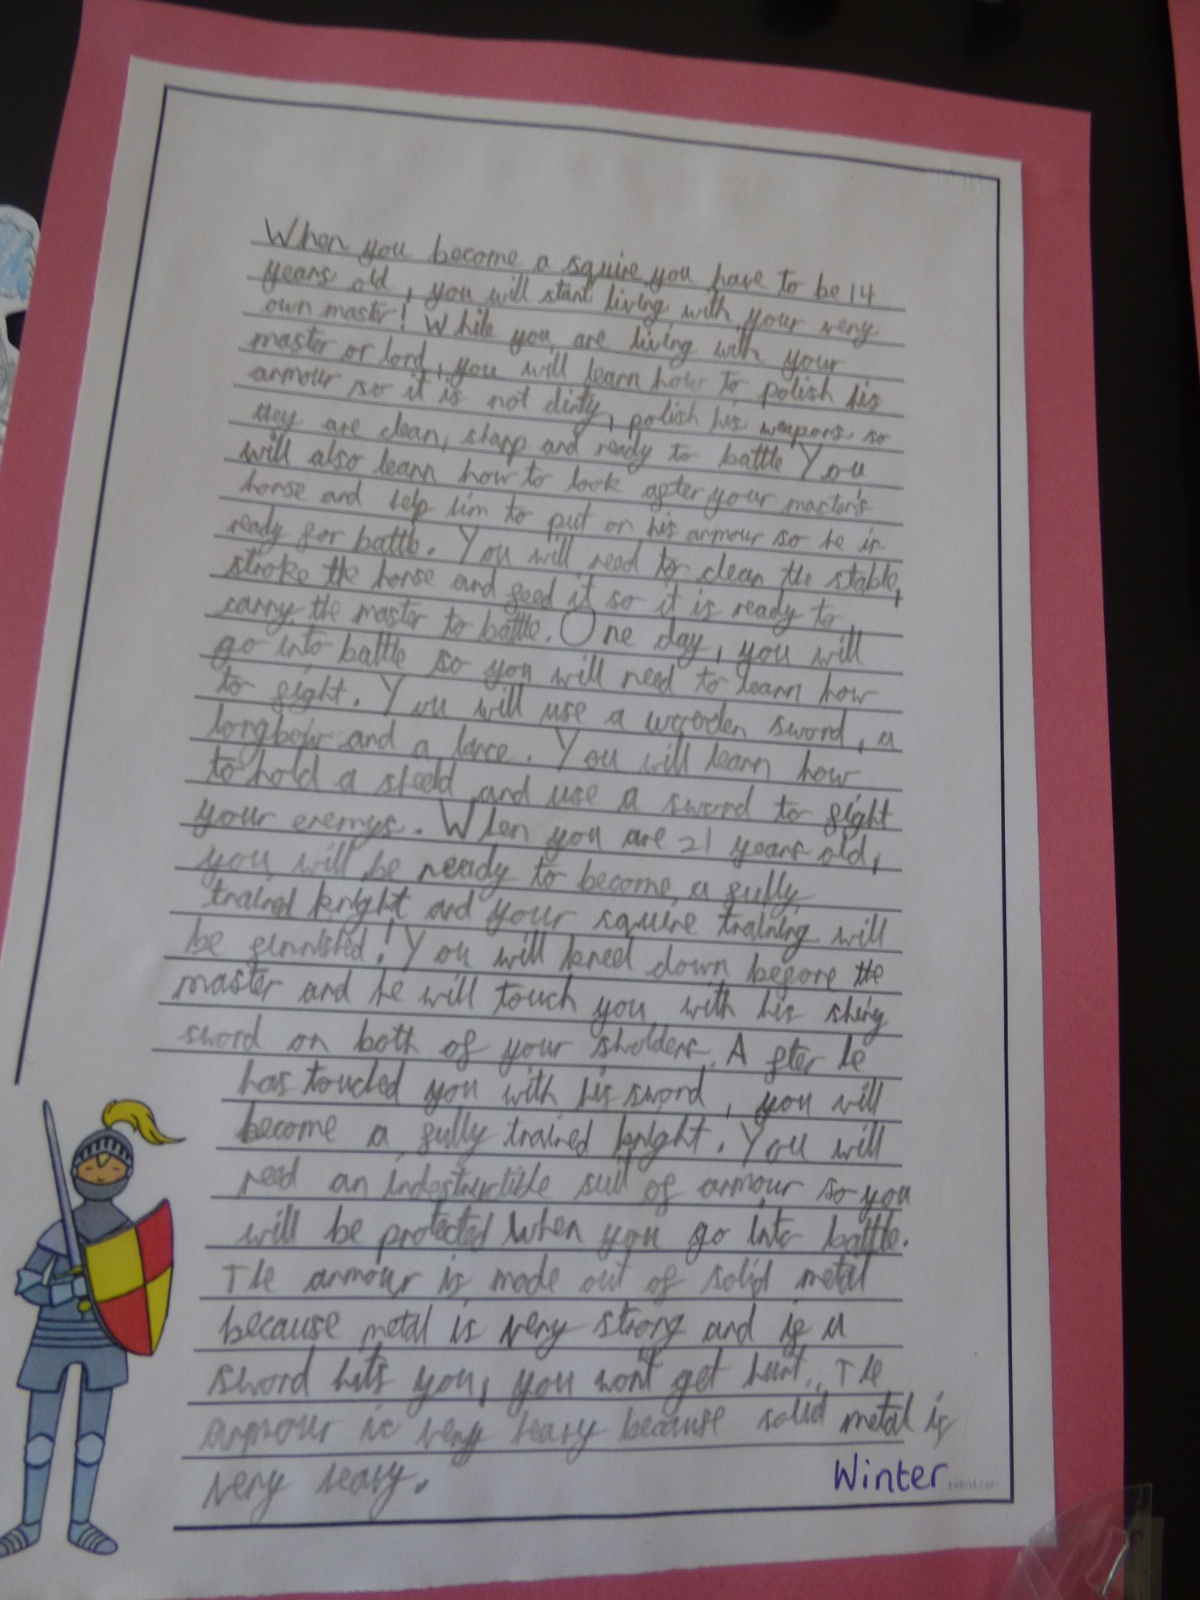 When you become a squire you have to be 14
years old, you will start living with your very
own master! While you are living with your
master or lord, you will learn how to polish his
armour so it is not dirty, polish his weapons so
they are clean, sharp and ready to battle You
will also learn how to look after your master's
horse and help him to put on his armour so he is
ready for battle. You will need to clean the stable,
stroke the horse and feed it so it is ready to
carry the master to battle. One day, you will
go into battle so you will need to learn how
to fight. You will use a wooden sword, a
longbow and a lance. You will learn how
to hold a sheeld and use a sword to fight
your enemys. When you are 21 years old,
you will be ready to become a fully
trained knight and your squire training will
be finnished! You will kneel down before the
master and he will touch you with his shiny
sword on both of your sholders. After he
has touched you with his sword, you will
become a fully trained knight. You will
need an indestructible suit of armour so you
will be protected when you go into battle.
The armour is made out of solid metal
because metal is very strong and if a
sword hits you, you won't get hurt. The
armour is very heavy because solid metal is
very heavy.
Winter